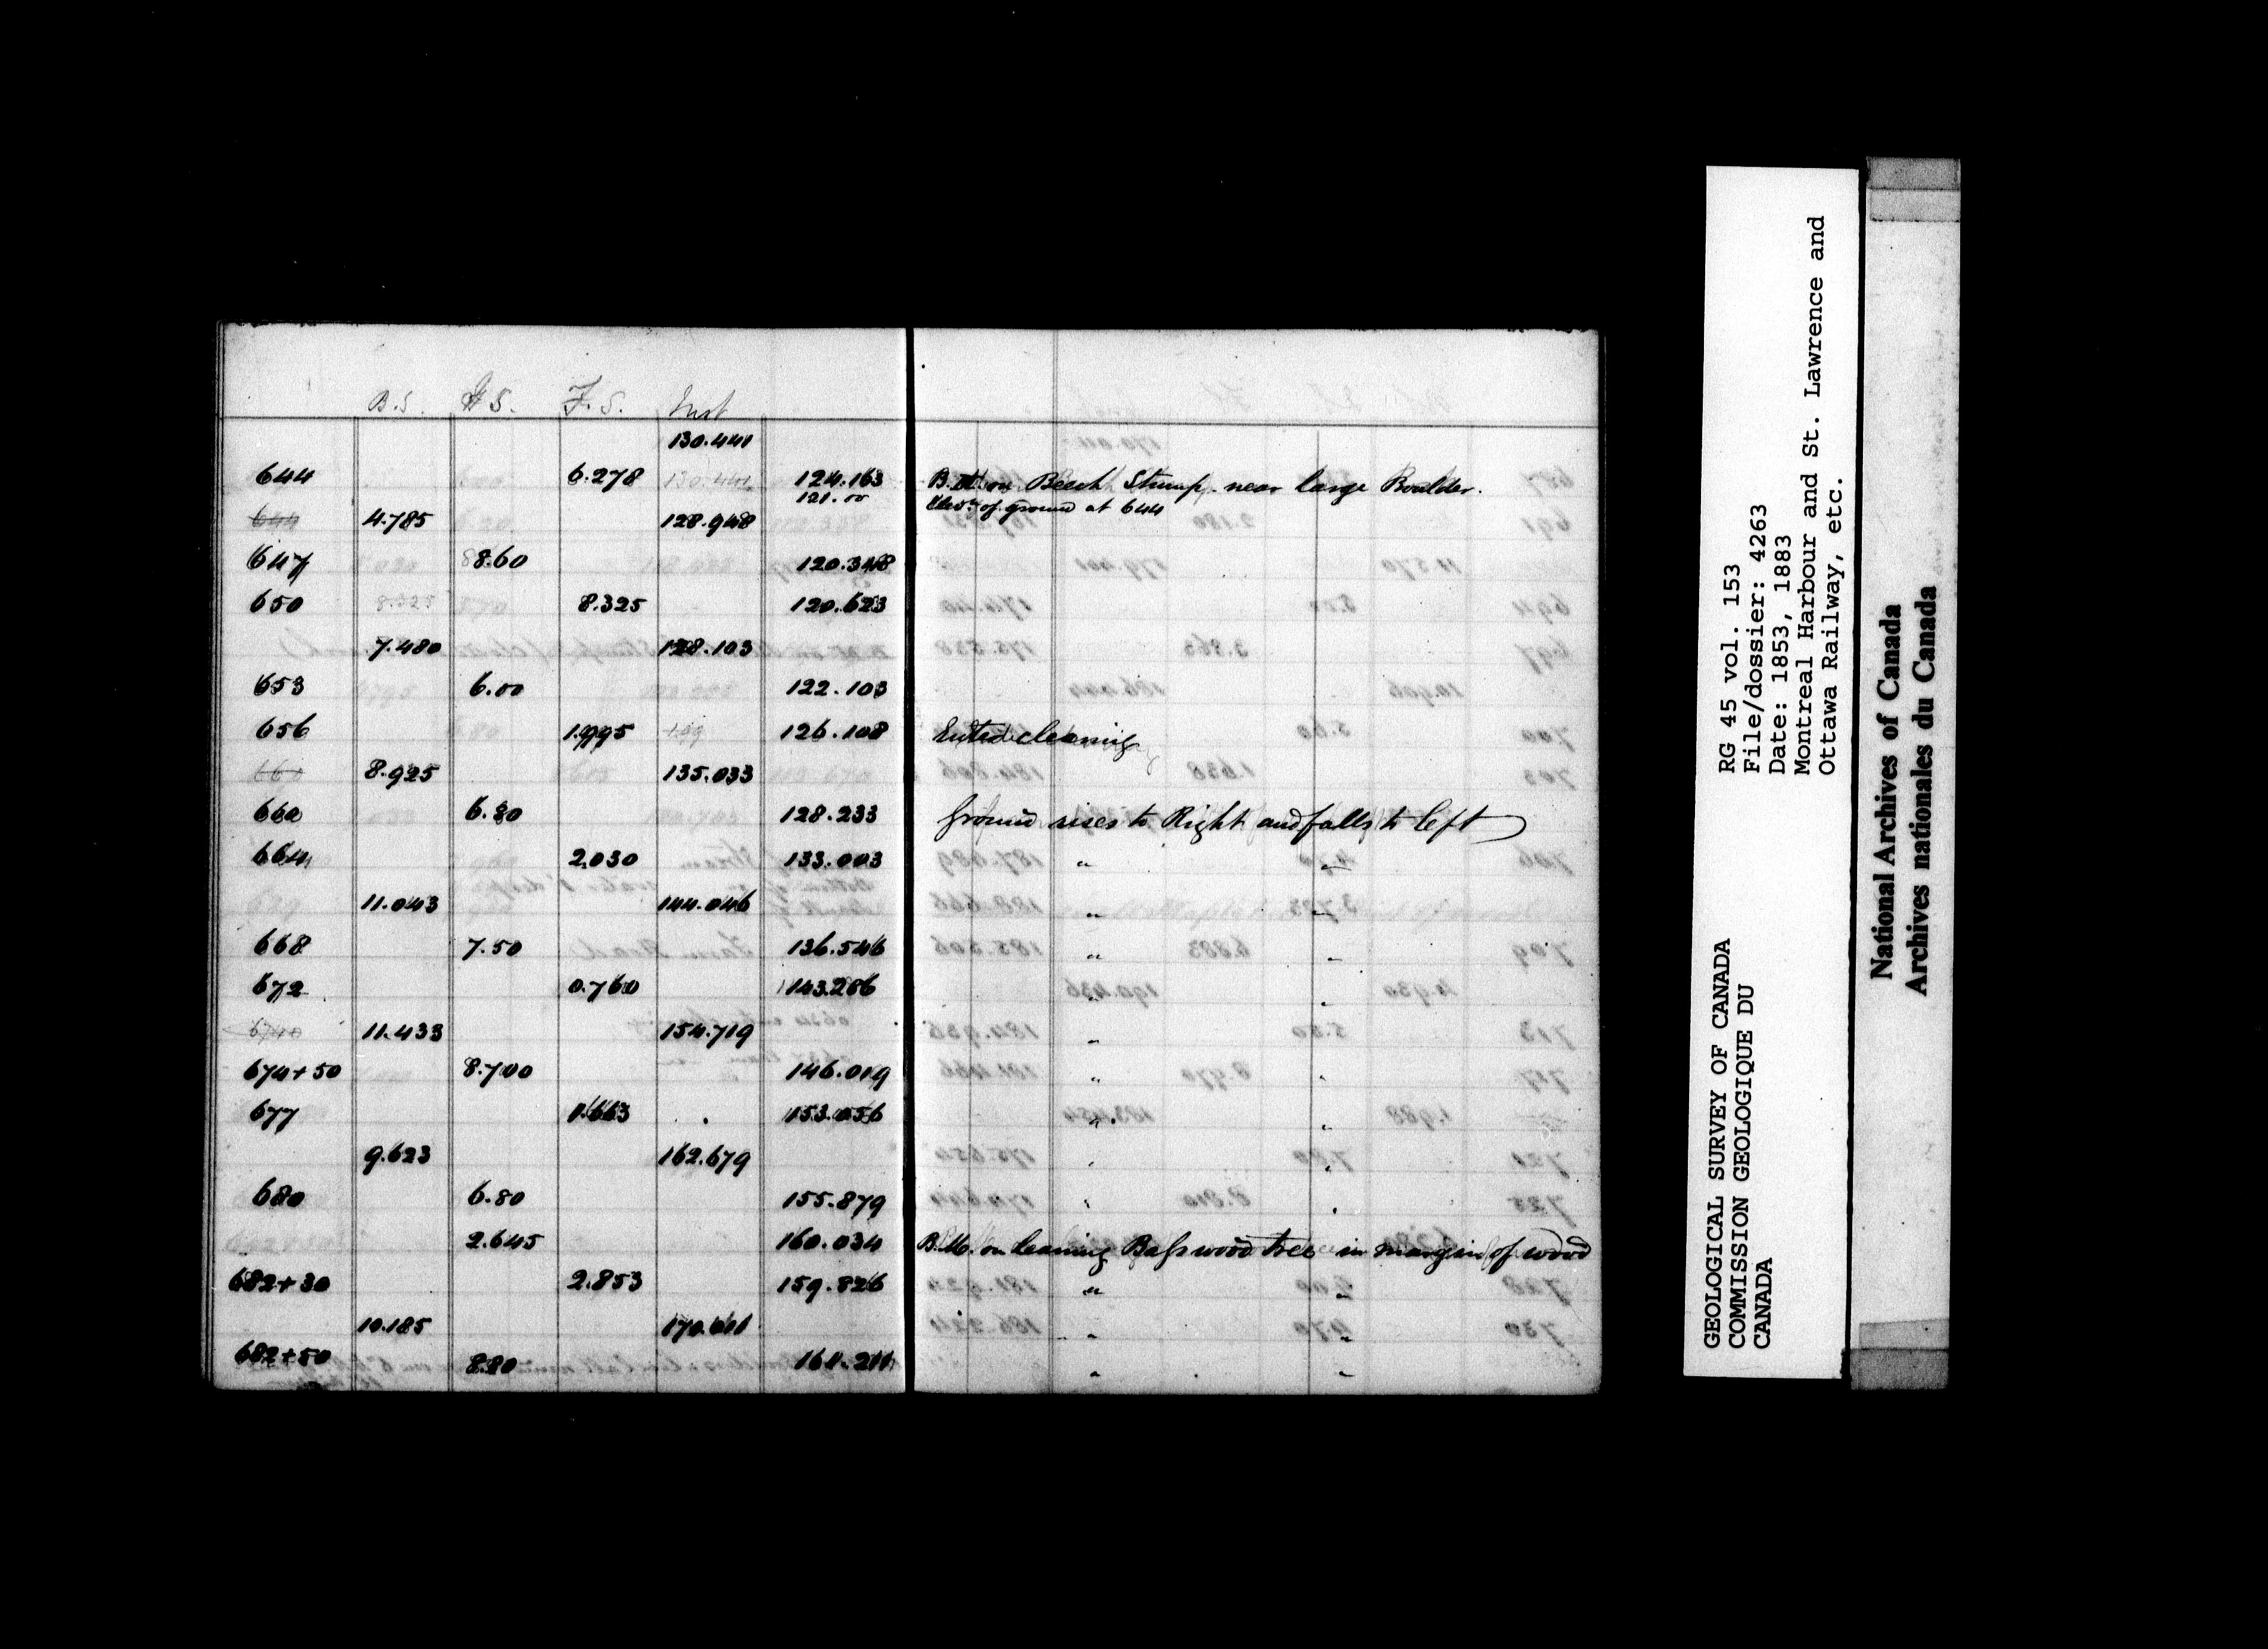 B.S. H S. F. S. Inst
130.441
644 6.278 130.441 124.163 B.M. on Beech Stump. near large Boulder.
121.00 Elevn. of ground at 644
644 4.785 128.948
647 8.60 120.348
650 8.325 8.325 120.623
7.480 128.103
653 6.00 122.103
656 1.995 199 126.108 Enter clearing
660 8.925 135.033
660 6.80 128.233 Ground rises to Right and falls to left
664 2.030 133.003 " "
11.043 144.046 " "
668 7.50 136.546 " "
672 0.760 143.286 " "
11.433 154.719 " "
674+50 8.700 146.019 " "
677 1.663 153.056 " "
9.623 162.679 " "
680 6.80 155.879 " "
2.645 160.034 B.M. on leaning Basswood tree in margin of wood
682+30 2.853 159.826 " "
10.185 170.011 " "
682+50 8.80 161.211 " "
GEOLOGICAL SURVEY OF CANADA
COMMISSION GEOLOGIQUE DU
CANADA
RG 45 vol. 153
File/dossier: 4263
Date: 1853, 1883
Montreal Harbour and St. Lawrence and
Ottawa Railway, etc.
National Archives of Canada
Archives nationales du Canada